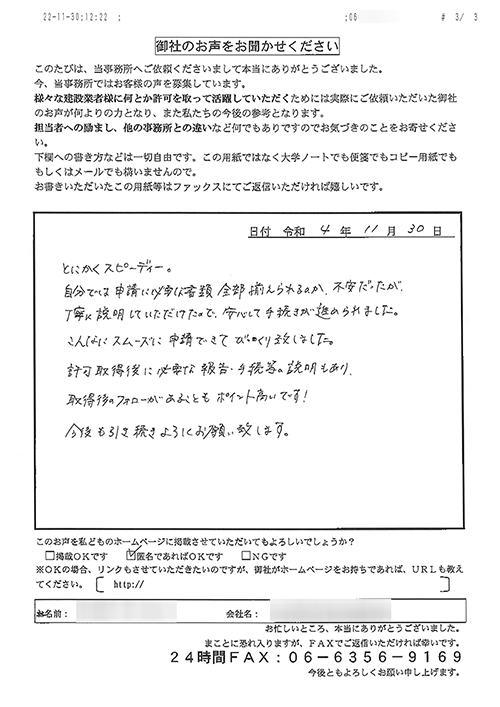 22-11-30;12:22 ; ;06 # 3/ 3
御社のお声をお聞かせください
このたびは、当事務所へご依頼くださいまして本当にありがとうございました。
今、当事務所ではお客様の声を募集しています。
様々な建設業者様に何とか許可を取って活躍していただくためには実際にご依頼いただいた御社
のお声が何よりの力となり、また私たちの今後の参考となります。
担当者への励まし、他の事務所との違いなど何でもありですのでお気づきのことをお寄せくださ
い。
下欄への書き方などは一切自由です。この用紙ではなく大学ノートでも便箋でもコピー用紙でも
もしくはメールでも構いませんので。
お書きいただいたこの用紙等はファックスにてご返信いただければ嬉しいです。
日付 令和 4 年 11 月 30 日
とにかくスピーディー。
自分では申請に必要な書類全部揃えられるのか、不安だったが、
丁寧に説明していただけたので、安心して手続きが進められました。
こんなにスムーズに申請できてびっくり致しました。
許可取得後に必要な報告・手続等の説明もあり、
取得後のフォローがあることもポイント高いです!
今後も引き続きよろしくお願い致します。
このお声を私どものホームページに掲載させていただいてもよろしいでしょうか?
□掲載OKです ☑匿名であればOKです □NGです
※OKの場合、リンクもさせていただきたいのですが、御社がホームページをお持ちであれば、URLも教え
てください。 〔 http:// 〕
お名前: 会社名:
お忙しいところ、本当にありがとうございました。
まことに恐れ入りますが、FAXでご返信いただければ幸いです。
24時間FAX:06-6356-9169
今後ともよろしくお願い申し上げます。